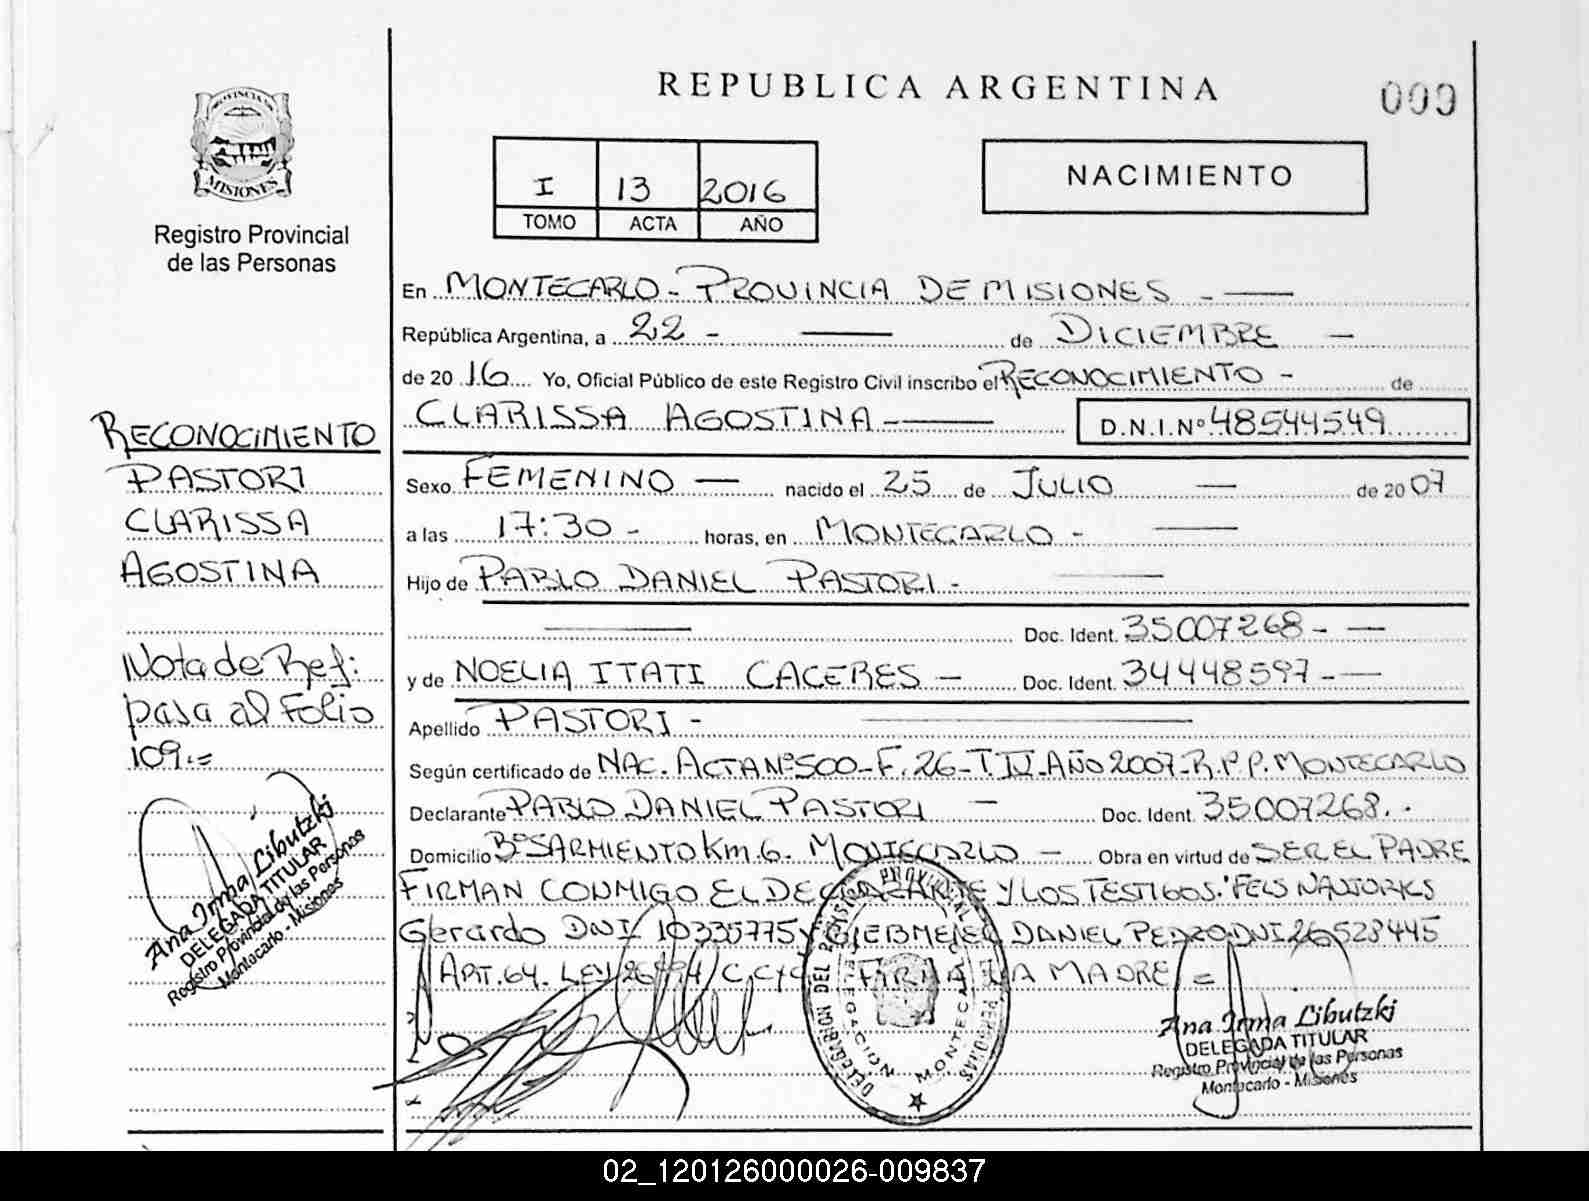 REPUBLICA ARGENTINA
000
PROVINCIA DE
MISIONES
Registro Provincial
de las Personas
I 13 2016
TOMO ACTA AÑO
NACIMIENTO
En MONTECARLO - PROVINCIA DE MISIONES -
República Argentina, a 22 - de DICIEMBRE -
de 20 16 Yo, Oficial Público de este Registro Civil inscribo el RECONOCIMIENTO - de
CLARISSA AGOSTINA - D.N.I. Nº 48544549
Sexo FEMENINO - nacido el 25 de JULIO - de 20 07
a las 17:30 - horas, en MONTECARLO -
Hijo de PABLO DANIEL PASTORI -
Doc. Ident. 35007268 -
y de NOELIA ITATI CACERES - Doc. Ident. 34448597 -
Apellido PASTORI -
Según certificado de NAC. ACTA Nº 500 - F. 26 - T. IV - AÑO 2007 - R.P.P. MONTECARLO
Declarante PABLO DANIEL PASTORI - Doc. Ident. 35007268. -
Domicilio Bº SARMIENTO Km. 6. MONTECARLO - Obra en virtud de SER EL PADRE
FIRMAN CONMIGO EL DECLARANTE Y LOS TESTIGOS:
Gerardo DNI 10335775 Y DANIEL PEDRO DNI 26528445
ART. 64. LEY FIRMA LA MADRE =
RECONOCIMIENTO
PASTORI
CLARISSA
AGOSTINA
Nota de Ref:
pasa al Folio
109.=
Ana Irma Libutzki
DELEGADA TITULAR
Registro Provincial de las Personas
Montecarlo - Misiones
DELEGACION DEL REGISTRO PROVINCIAL PERSONAS
DELEGACION MONTECARLO
Ana Irma Libutzki
DELEGADA TITULAR
Registro Provincial de las Personas
Montecarlo - Misiones
02_120126000026-009837